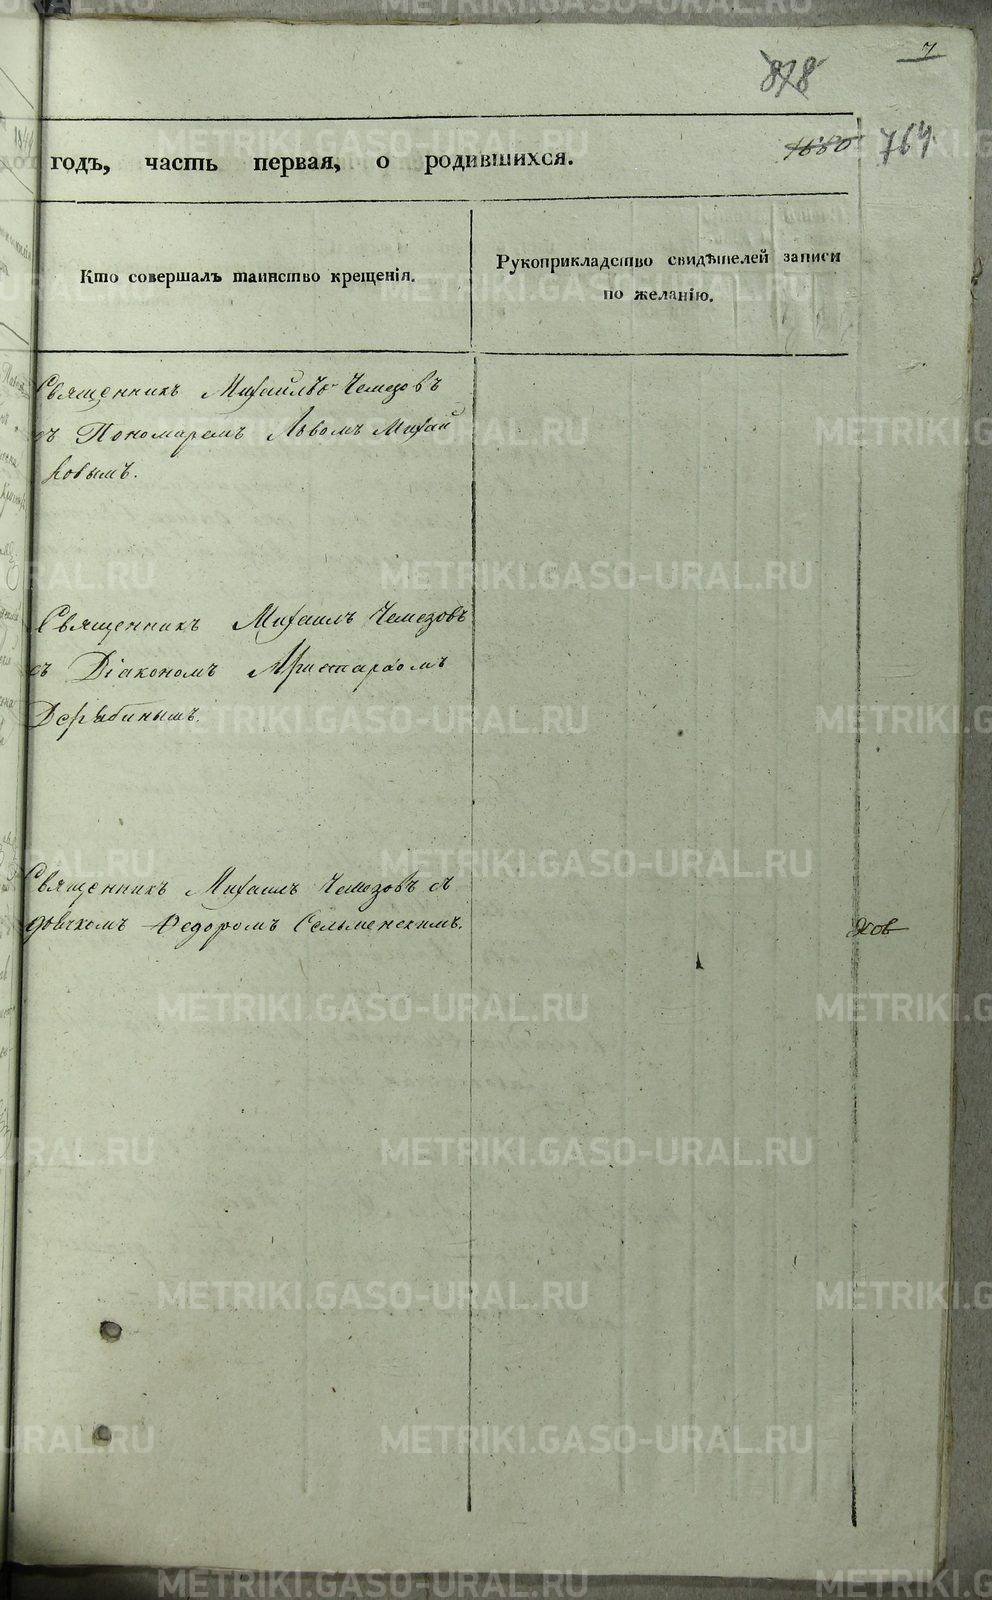 7
878
1880
764.
годъ, часть первая, о родившихся.
Кто совершалъ таинство крещенія.
Рукоприкладство свидѣтелей записи
по желанію.
Священникъ Михаилъ Чемезовъ
съ Пономаремъ Львомъ Михай
ловымъ.
Священникъ Михаилъ Чемезовъ
съ Діакономъ Аристархомъ
Дерябинымъ.
Священникъ Михаилъ Чемезовъ съ
дьячкомъ Федоромъ Сельменскимъ.
ковъ
METRIKI.GASO-URAL.RU